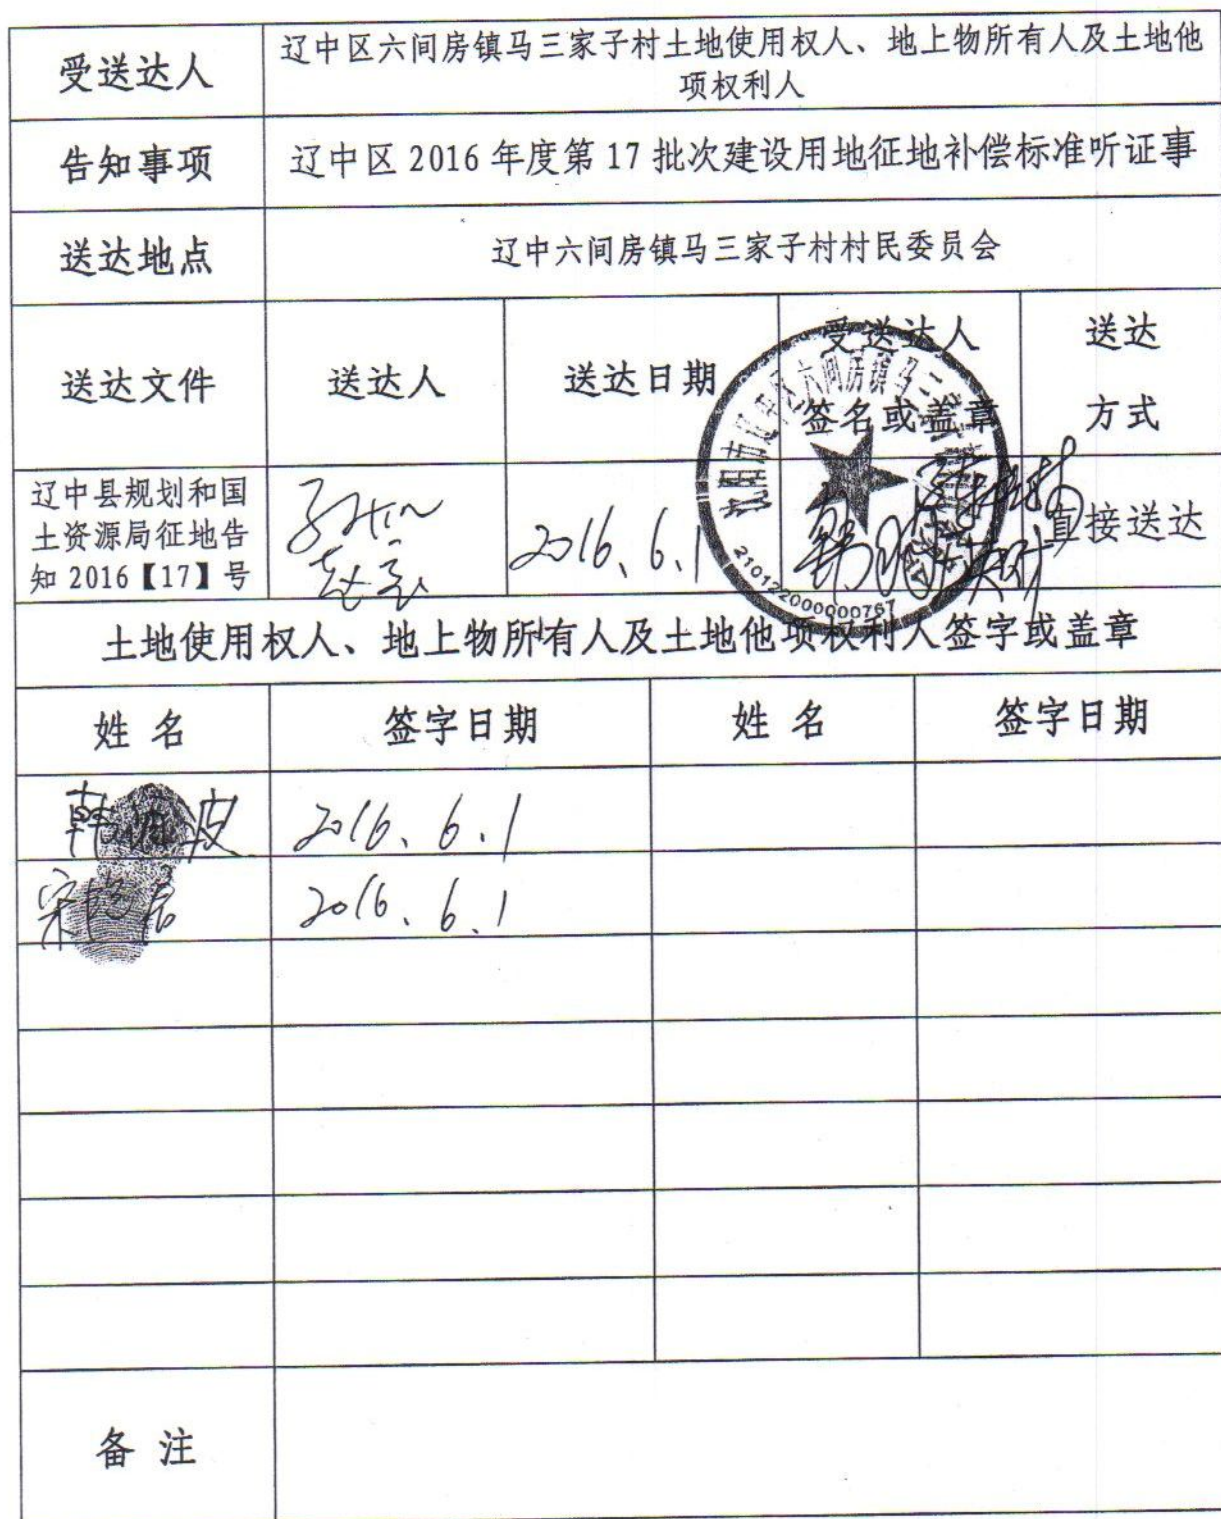 受送达人
辽中区六间房镇马三家子村土地使用权人、地上物所有人及土地他
项权利人
告知事项
辽中区 2016 年度第 17 批次建设用地征地补偿标准听证事
送达地点
辽中六间房镇马三家子村村民委员会
送达文件
送达人
送达日期
受送达人
签名或盖章
送达
方式
辽中县规划和国
土资源局征地告
知 2016【17】号
2016、6、1
直接送达
210122000000767
土地使用权人、地上物所有人及土地他项权利人签字或盖章
姓 名
签字日期
姓 名
签字日期
2016、6、1
2016、6、1
备 注